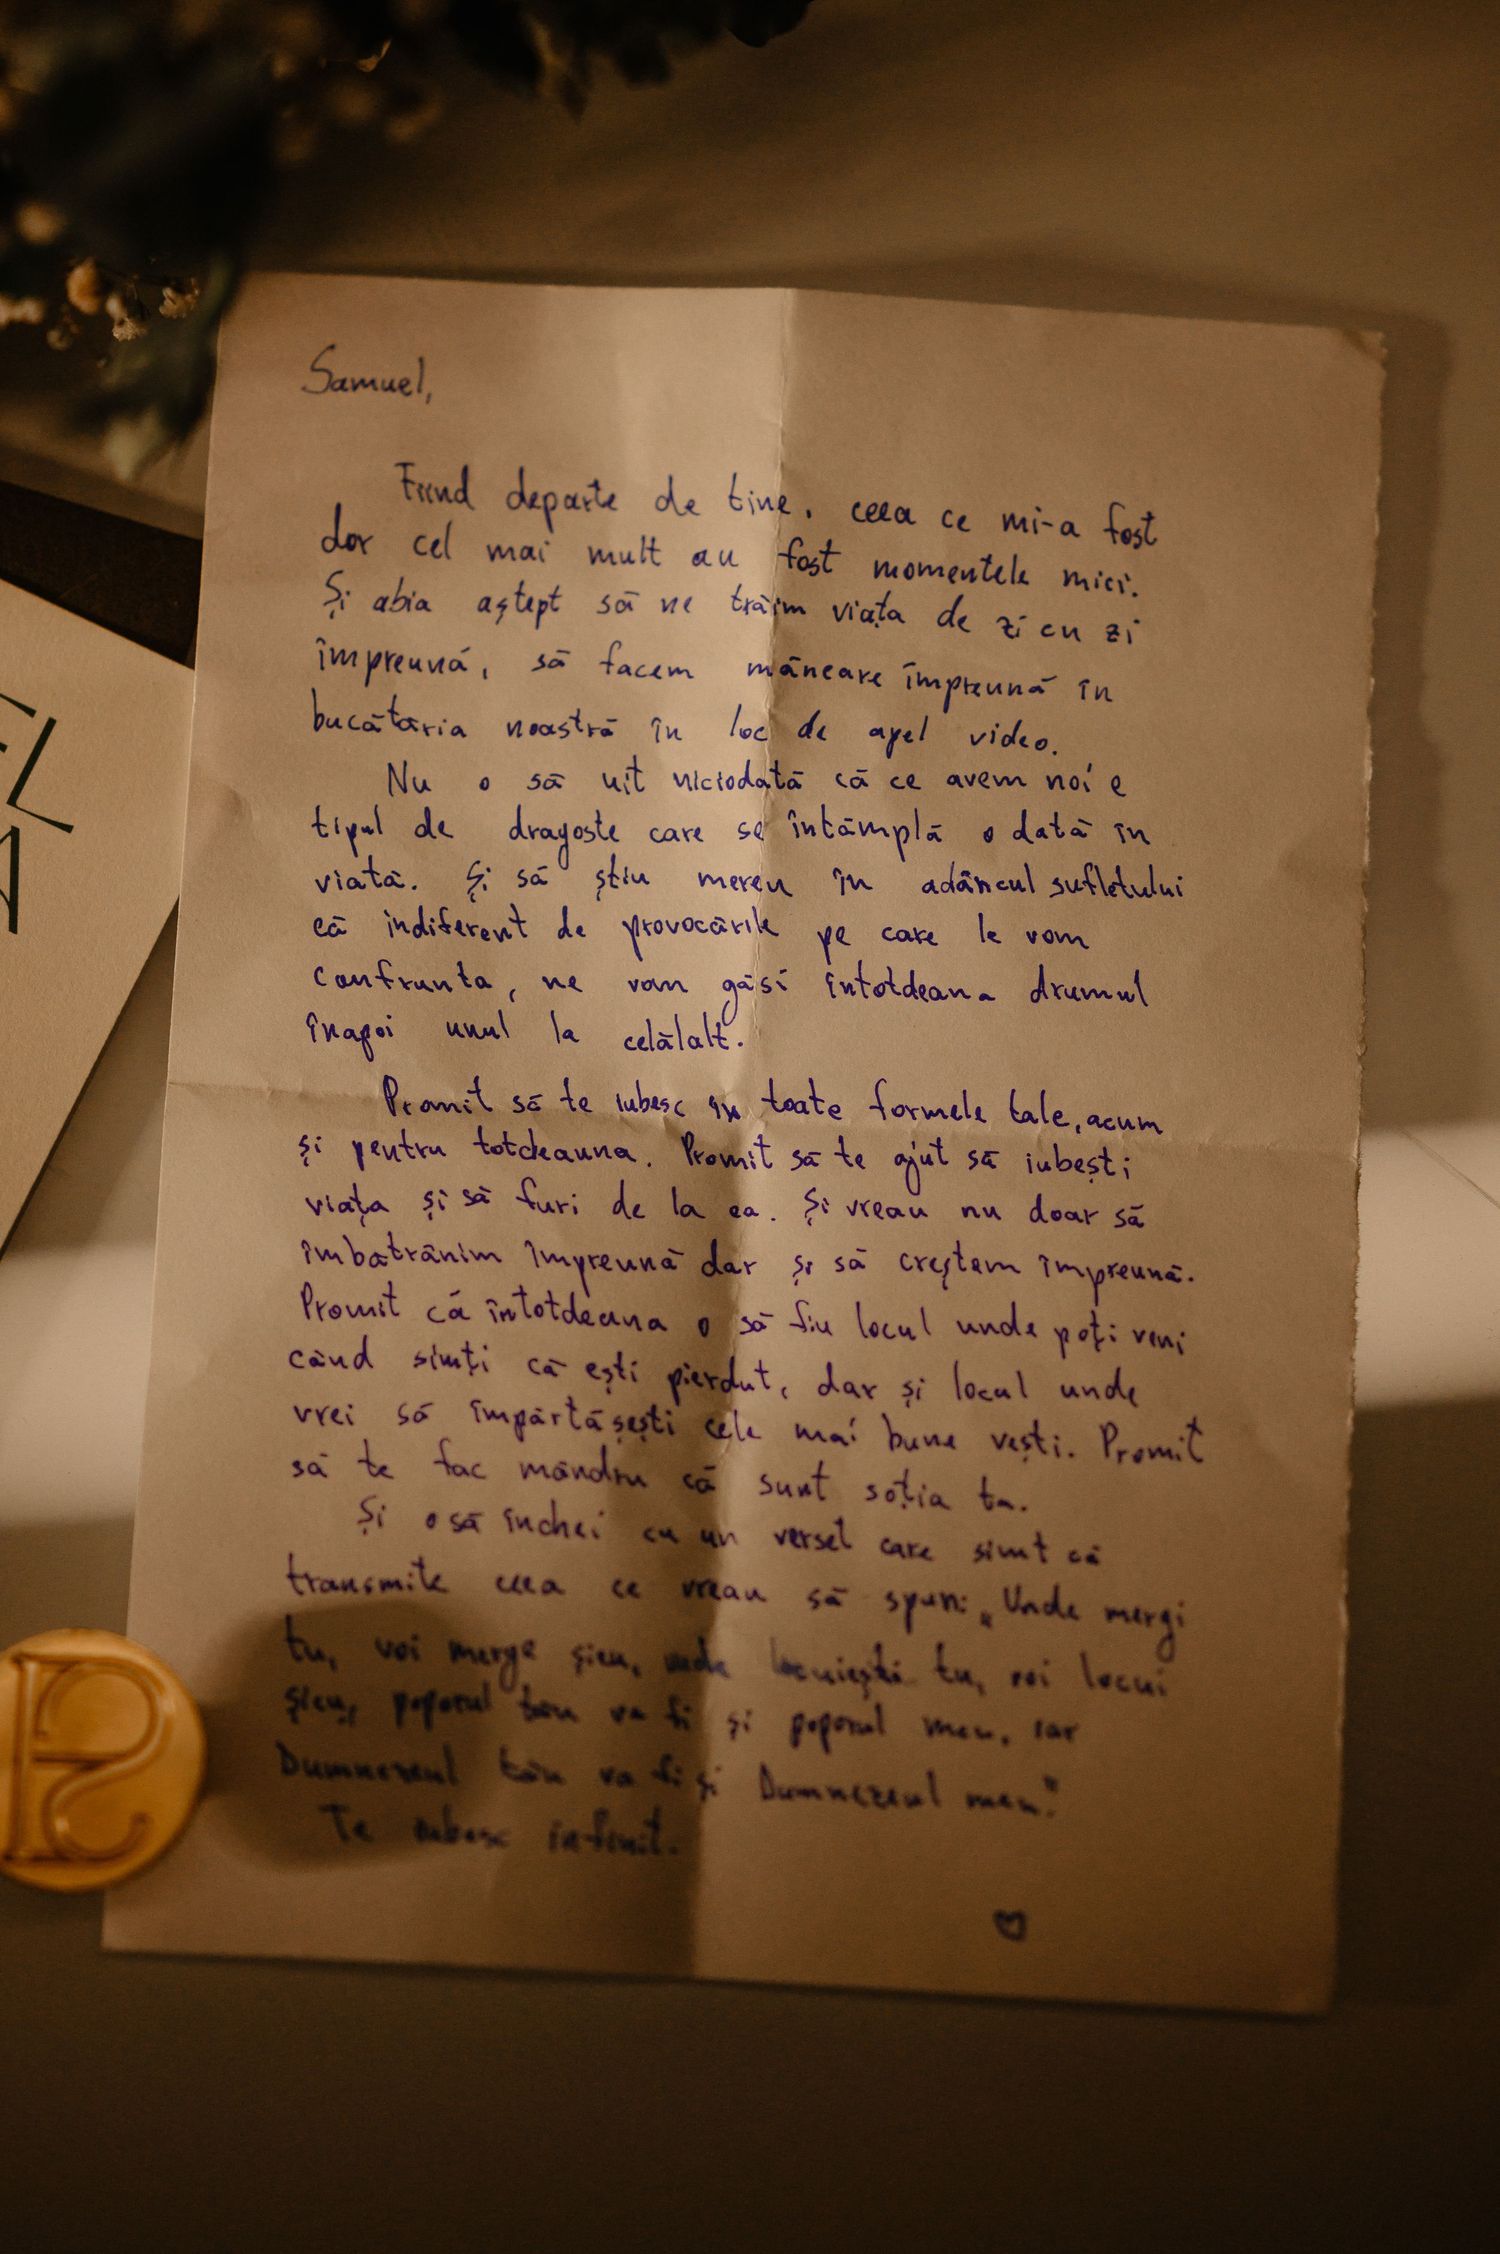 Samuel,
Fiind departe de tine, ceea ce mi-a fost
dor cel mai mult au fost momentele mici.
Și abia aștept să ne trăim viața de zi cu zi
împreună, să facem mâncare împreună în
bucătăria noastră în loc de apel video.
Nu o să uit niciodată că ce avem noi e
tipul de dragoste care se întâmplă o dată în
viată. Și să știu mereu în adâncul sufletului
că indiferent de provocările pe care le vom
confrunta, ne vom găsi întotdeauna drumul
înapoi unul la celălalt.
Promit să te iubesc în toate formele tale, acum
și pentru totdeauna. Promit să te ajut să iubești
viața și să furi de la ea. Și vreau nu doar să
îmbatrânim împreună dar și să creștem împreună.
Promit că întotdeauna o să fiu locul unde poți veni
când simți că ești pierdut, dar și locul unde
vrei să împărtășești cele mai bune vești. Promit
să te fac mândru că sunt soția ta.
Și o să închei cu un verset care simt că
transmite ceea ce vreau să spun: „Unde mergi
tu, voi merge și eu, unde locuiești tu, voi locui
și eu, poporul tău va fi și poporul meu, iar
Dumnezeul tău va fi și Dumnezeul meu."
Te iubesc infinit.
EL